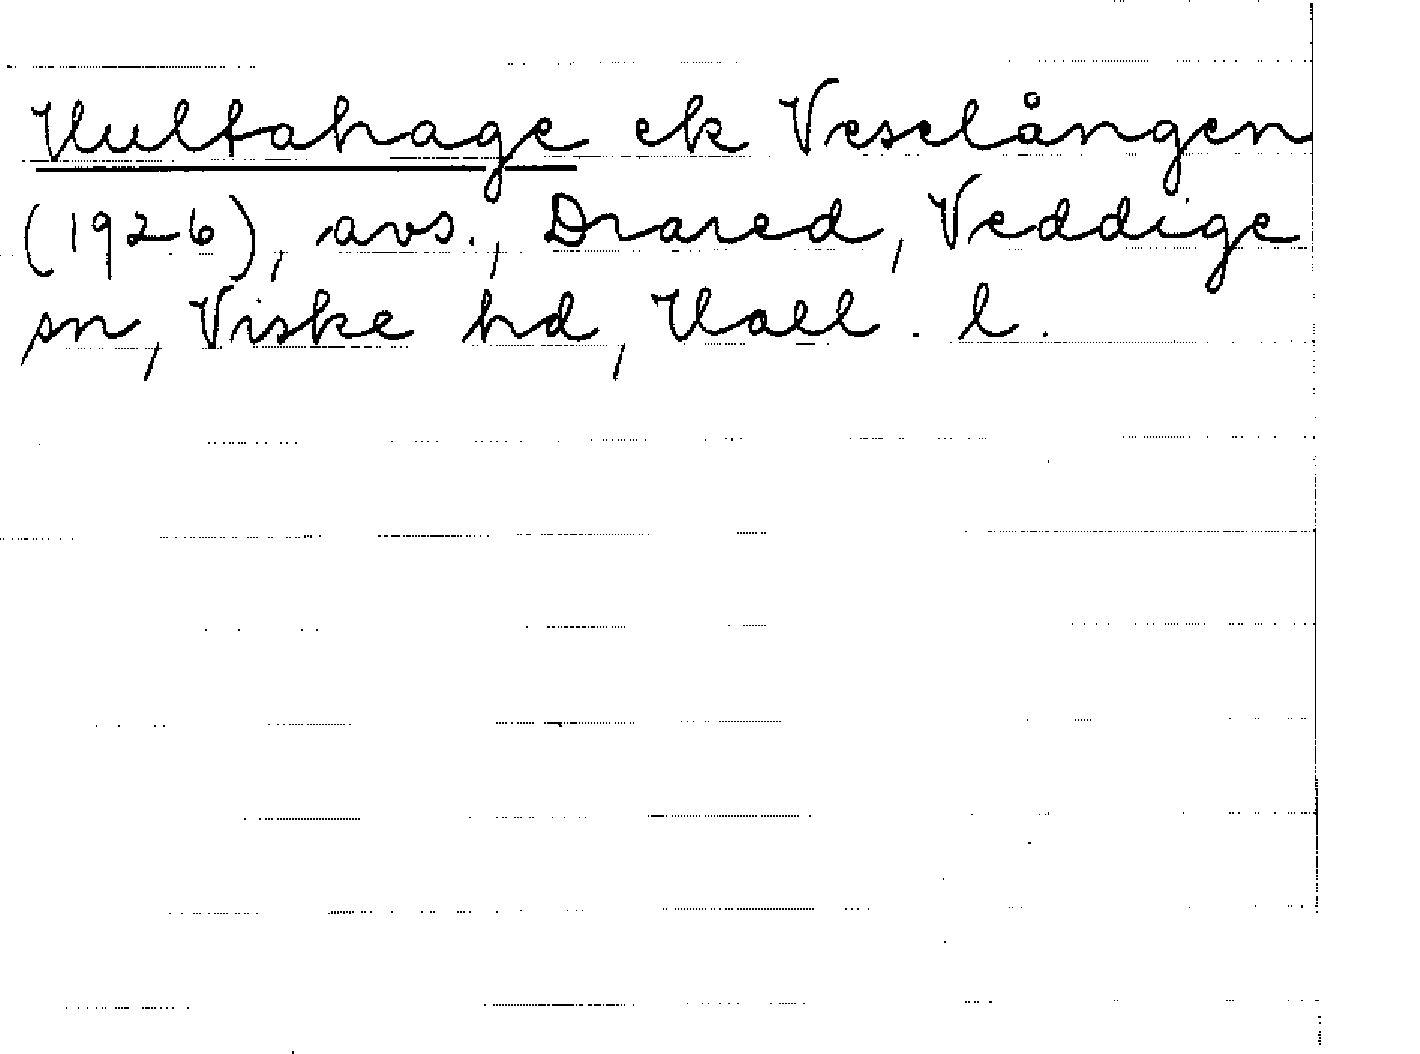 Hultahage ek Veselången
(1926), avs., Drared, Veddige
sn, Viske hd, Hall. l.